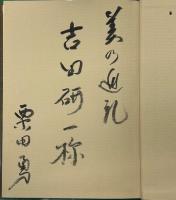 美の巡礼
吉田研一様
栗田勇